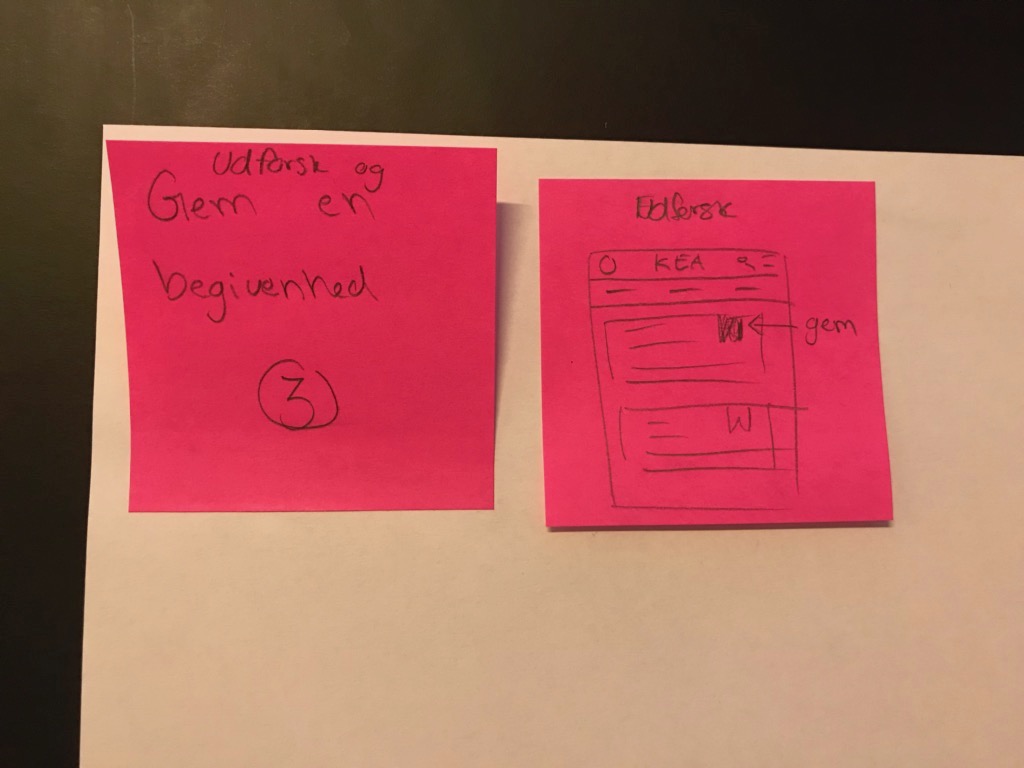 Udforsk og
Gem en
begivenhed
3
Udforsk
KEA
gem